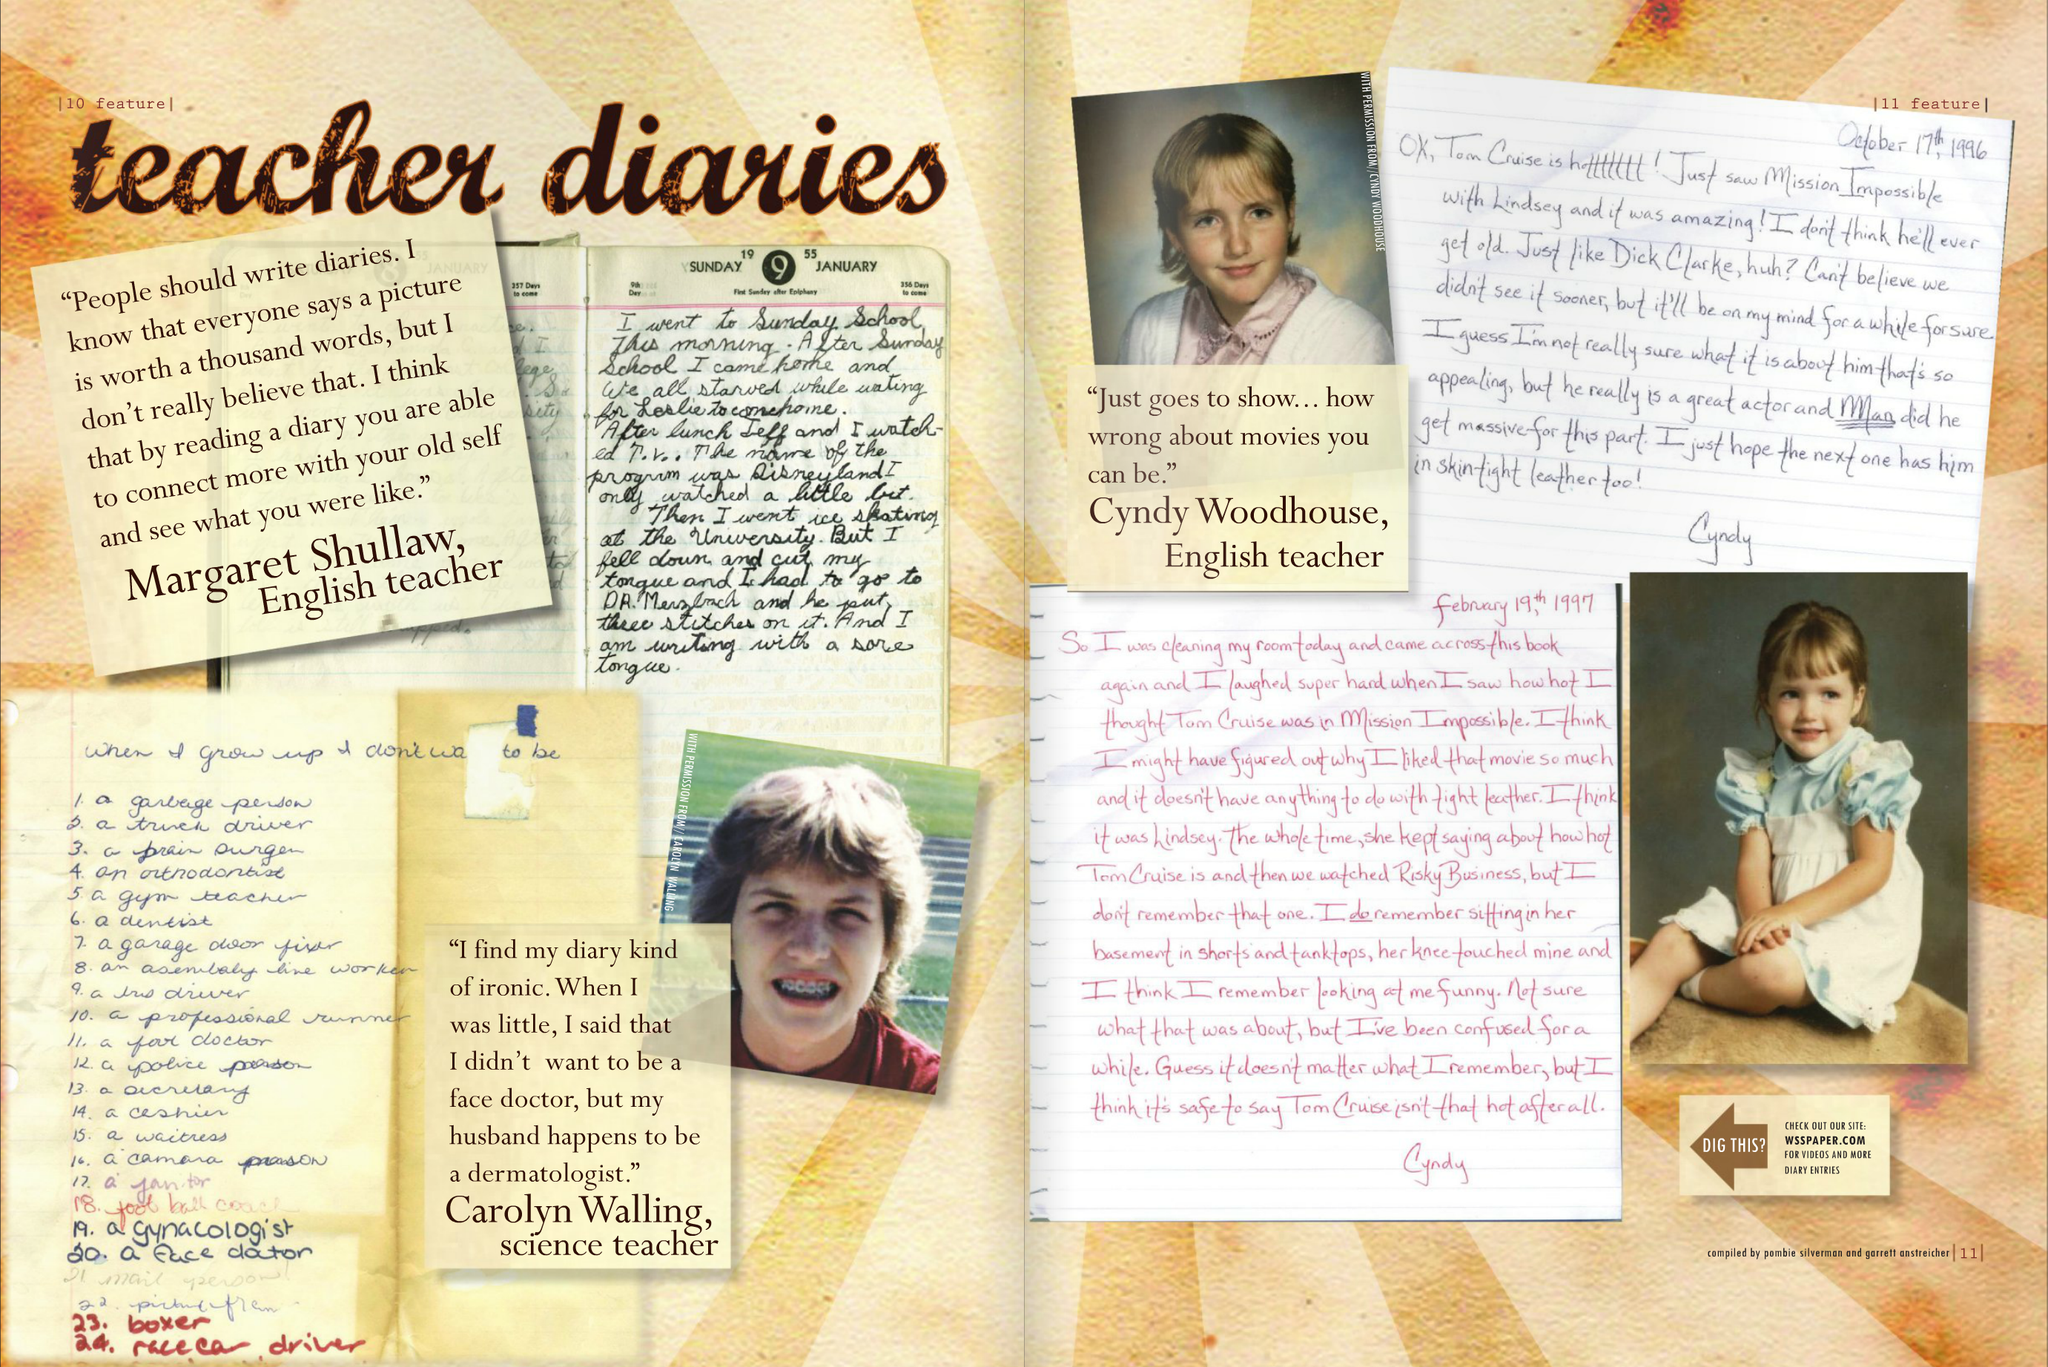 |10 feature|
teacher diaries
“People should write diaries. I
know that everyone says a picture
is worth a thousand words, but I
don’t really believe that. I think
that by reading a diary you are able
to connect more with your old self
and see what you were like.”
Margaret Shullaw,
English teacher
357 Days
to come
SUNDAY 19 9 55 JANUARY
9th
Day
First Sunday after Epiphany
356 Days
to come
I went to Sunday School
This morning. After Sunday
School I came home and
We all starved while wating
for Leslie to come home.
After lunch Jeff and I watch-
ed T.V.. The name of the
program was Disneyland I
only watched a little bit.
Then I went ice skating
at the University. But I
fell down and cut my
tongue and I had to go to
DR. Merzbach and he put
three stitches on it. And I
am writing with a sore
tongue.
when I grow up I don't wa to be
1. a garbage person
2. a truck driver
3. a brain surgen
4. an orthodontist
5. a gym teacher
6. a dentist
7. a garage door fixer
8. an asembaly line worker
9. a bus driver
10. a professional runner
11. a foot doctor
12. a police person
13. a secretary
14. a cashier
15. a waitress
16. a camara person
17. a janitor
18. foot ball coach
19. a gynacologist
20. a face doctor
21 mail person
22.
23. boxer
24. race car driver
WITH PERMISSION FROM// CAROLYN WALLING
“I find my diary kind
of ironic. When I
was little, I said that
I didn’t want to be a
face doctor, but my
husband happens to be
a dermatologist.”
Carolyn Walling,
science teacher
WITH PERMISSION FROM//CYNDY WOODHOUSE
“Just goes to show... how
wrong about movies you
can be.”
Cyndy Woodhouse,
English teacher
|11 feature|
October 17th, 1996
OK, Tom Cruise is hotttttttt! Just saw Mission Impossible
with Lindsey and it was amazing! I don't think he'll ever
get old. Just like Dick Clarke, huh? Can't believe we
didn't see it sooner, but it'll be on my mind for a while for sure
I guess I'm not really sure what it is about him that's so
appealing, but he really is a great actor and Man did he
get massive for this part. I just hope the next one has him
in skin tight leather too!
Cyndy
february 19th, 1997
So I was cleaning my room today and came across this book
again and I laughed super hard when I saw how hot I
thought Tom Cruise was in Mission Impossible. I think
I might have figured out why I liked that movie so much
and it doesn't have anything to do with tight leather. I think
it was Lindsey. The whole time, she kept saying about how hot
Tom Cruise is and then we watched Risky Business, but I
don't remember that one. I do remember sitting in her
basement in shorts and tanktops, her knee touched mine and
I think I remember looking at me funny. Not sure
what that was about, but I've been confused for a
while. Guess it doesn't matter what I remember, but I
think it's safe to say Tom Cruise isn't that hot after all.
Cyndy
DIG THIS?
CHECK OUT OUR SITE:
WSSPAPER.COM
FOR VIDEOS AND MORE
DIARY ENTRIES
compiled by pombie silverman and garrett anstreicher |11|